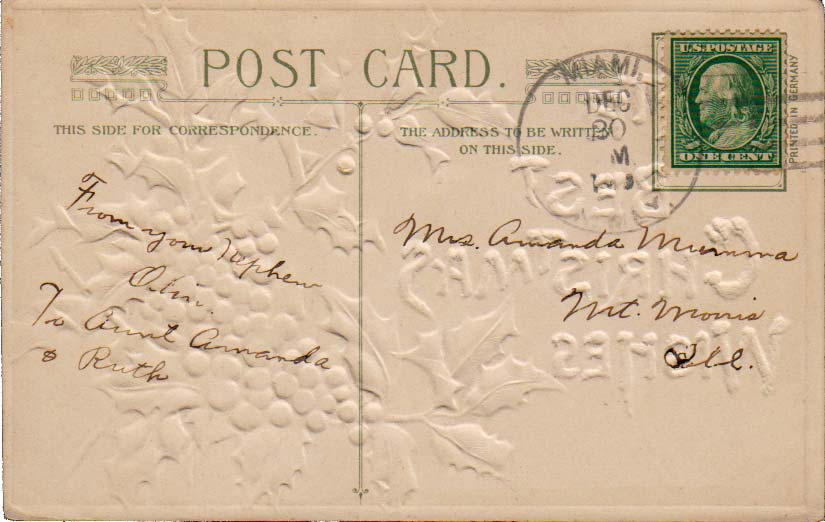 POST CARD.
THIS SIDE FOR CORRESPONDENCE.
THE ADDRESS TO BE WRITTEN
ON THIS SIDE.
U.S. POSTAGE
ONE CENT
PRINTED IN GERMANY
MIAMI,
DEC
30
M
From your Nephew
Olin.
To Aunt Amanda
& Ruth
Mrs. Amanda Mumma
Mt. Morris
Ill.
BEST
CHRISTMAS
WISHES